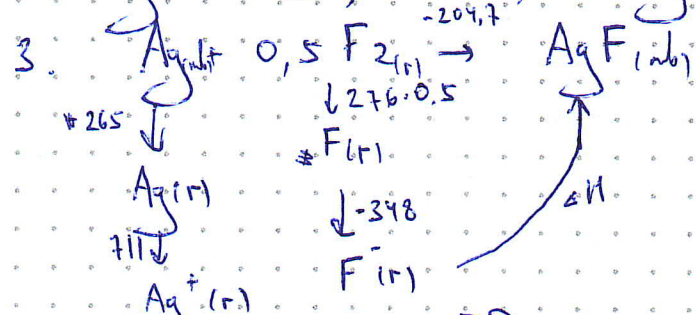 -204,7
3. Ag(тв)+ 0,5 F2(г) → AgF(тв)
+265 ↓ ↓ 276·0,5
F(г)
Ag(г) ↓ -348 ΔH
711 ↓ F⁻(г)
Ag⁺(г)